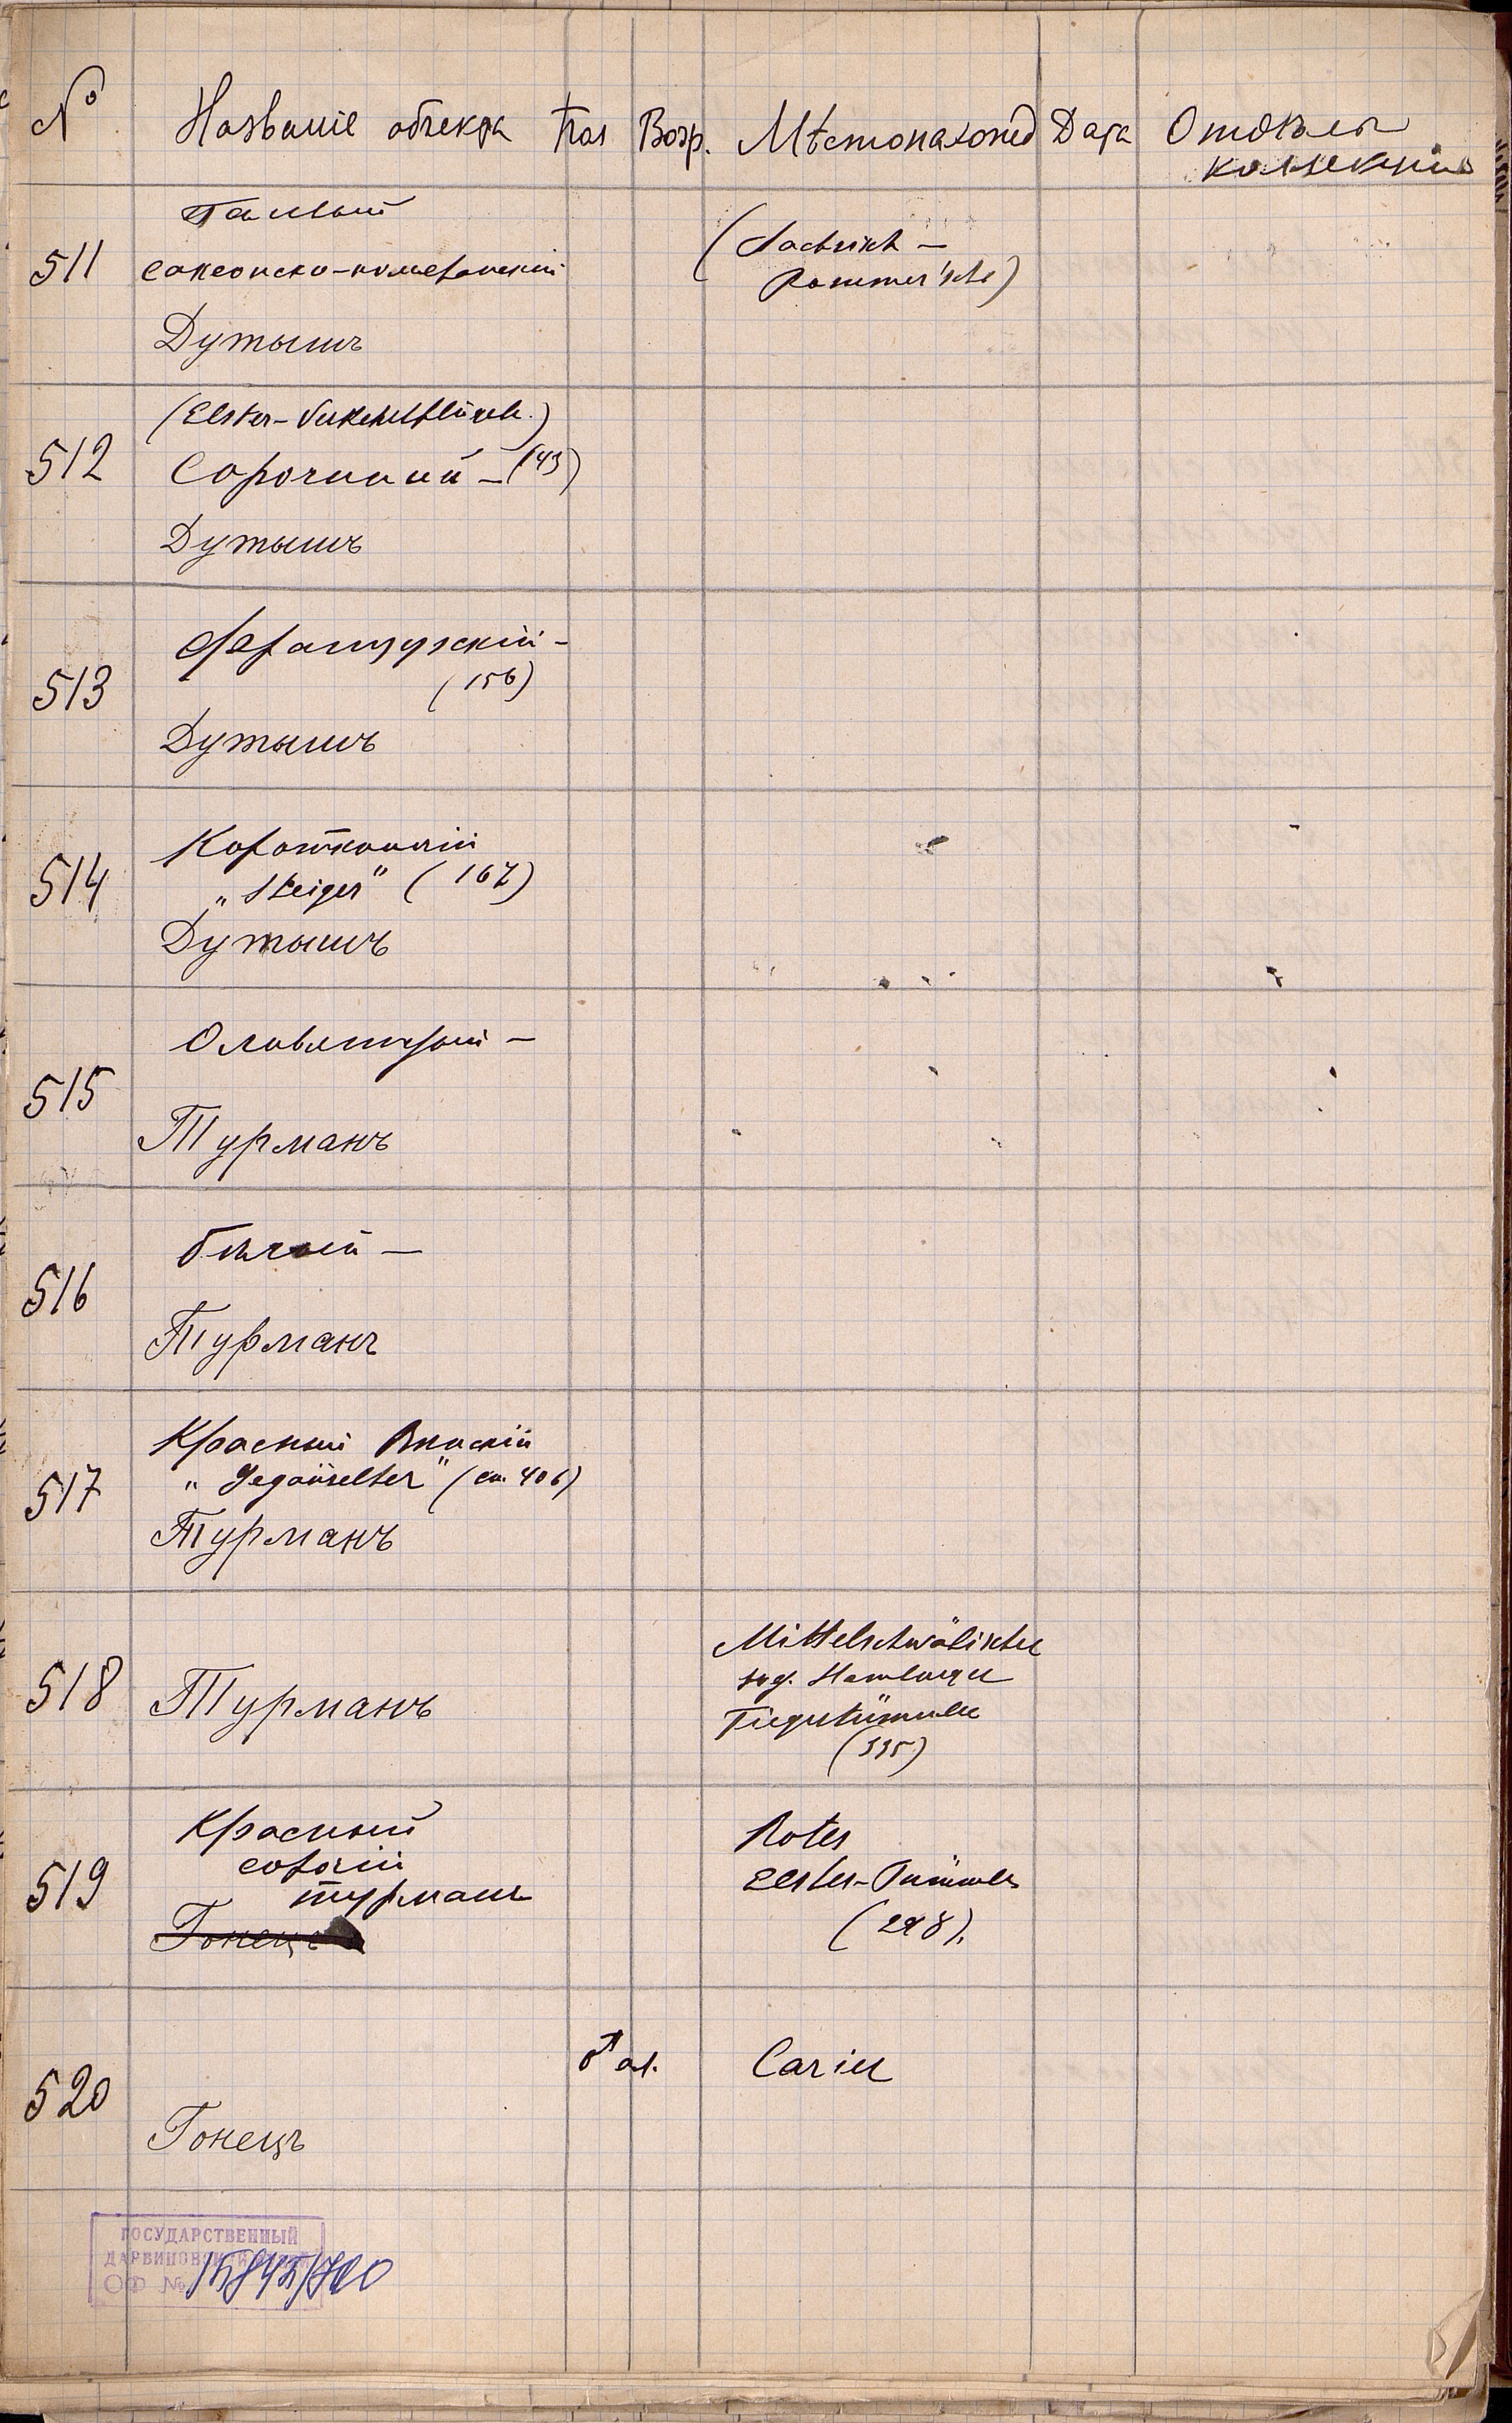 № Названіе объекта Пол Возр. Мѣстонахожд Дата Отдѣлы
коллекціи
511
Палевый
саксонско-померанскій
Дутышъ
(Sächsisch –
Pommer'sche)
512
(Elster-Verkehrtflügel.)
Сорочий – (143)
Дутышъ
513
Французскій –
(156)
Дутышъ
514
Коротконогій
„Steiger" (167)
Дутышъ
515
Оливковый –
Турманъ
516
Бѣлый –
Турманъ
517
Красный Вѣнскій
„Geganselter" (см. 406)
Турманъ
518
Турманъ
Mittelschnäblicher
sog. Hamburger
Tigertümmler
(335)
519
Красный
сорочій
турманъ
Гонецъ
Roter
Elster-Tümmler
(298).
520
Гонецъ
♂ ad.
Carier
ГОСУДАРСТВЕННЫЙ
ДАРВИНОВСКИЙ МУЗЕЙ
ОФ № 15845/700